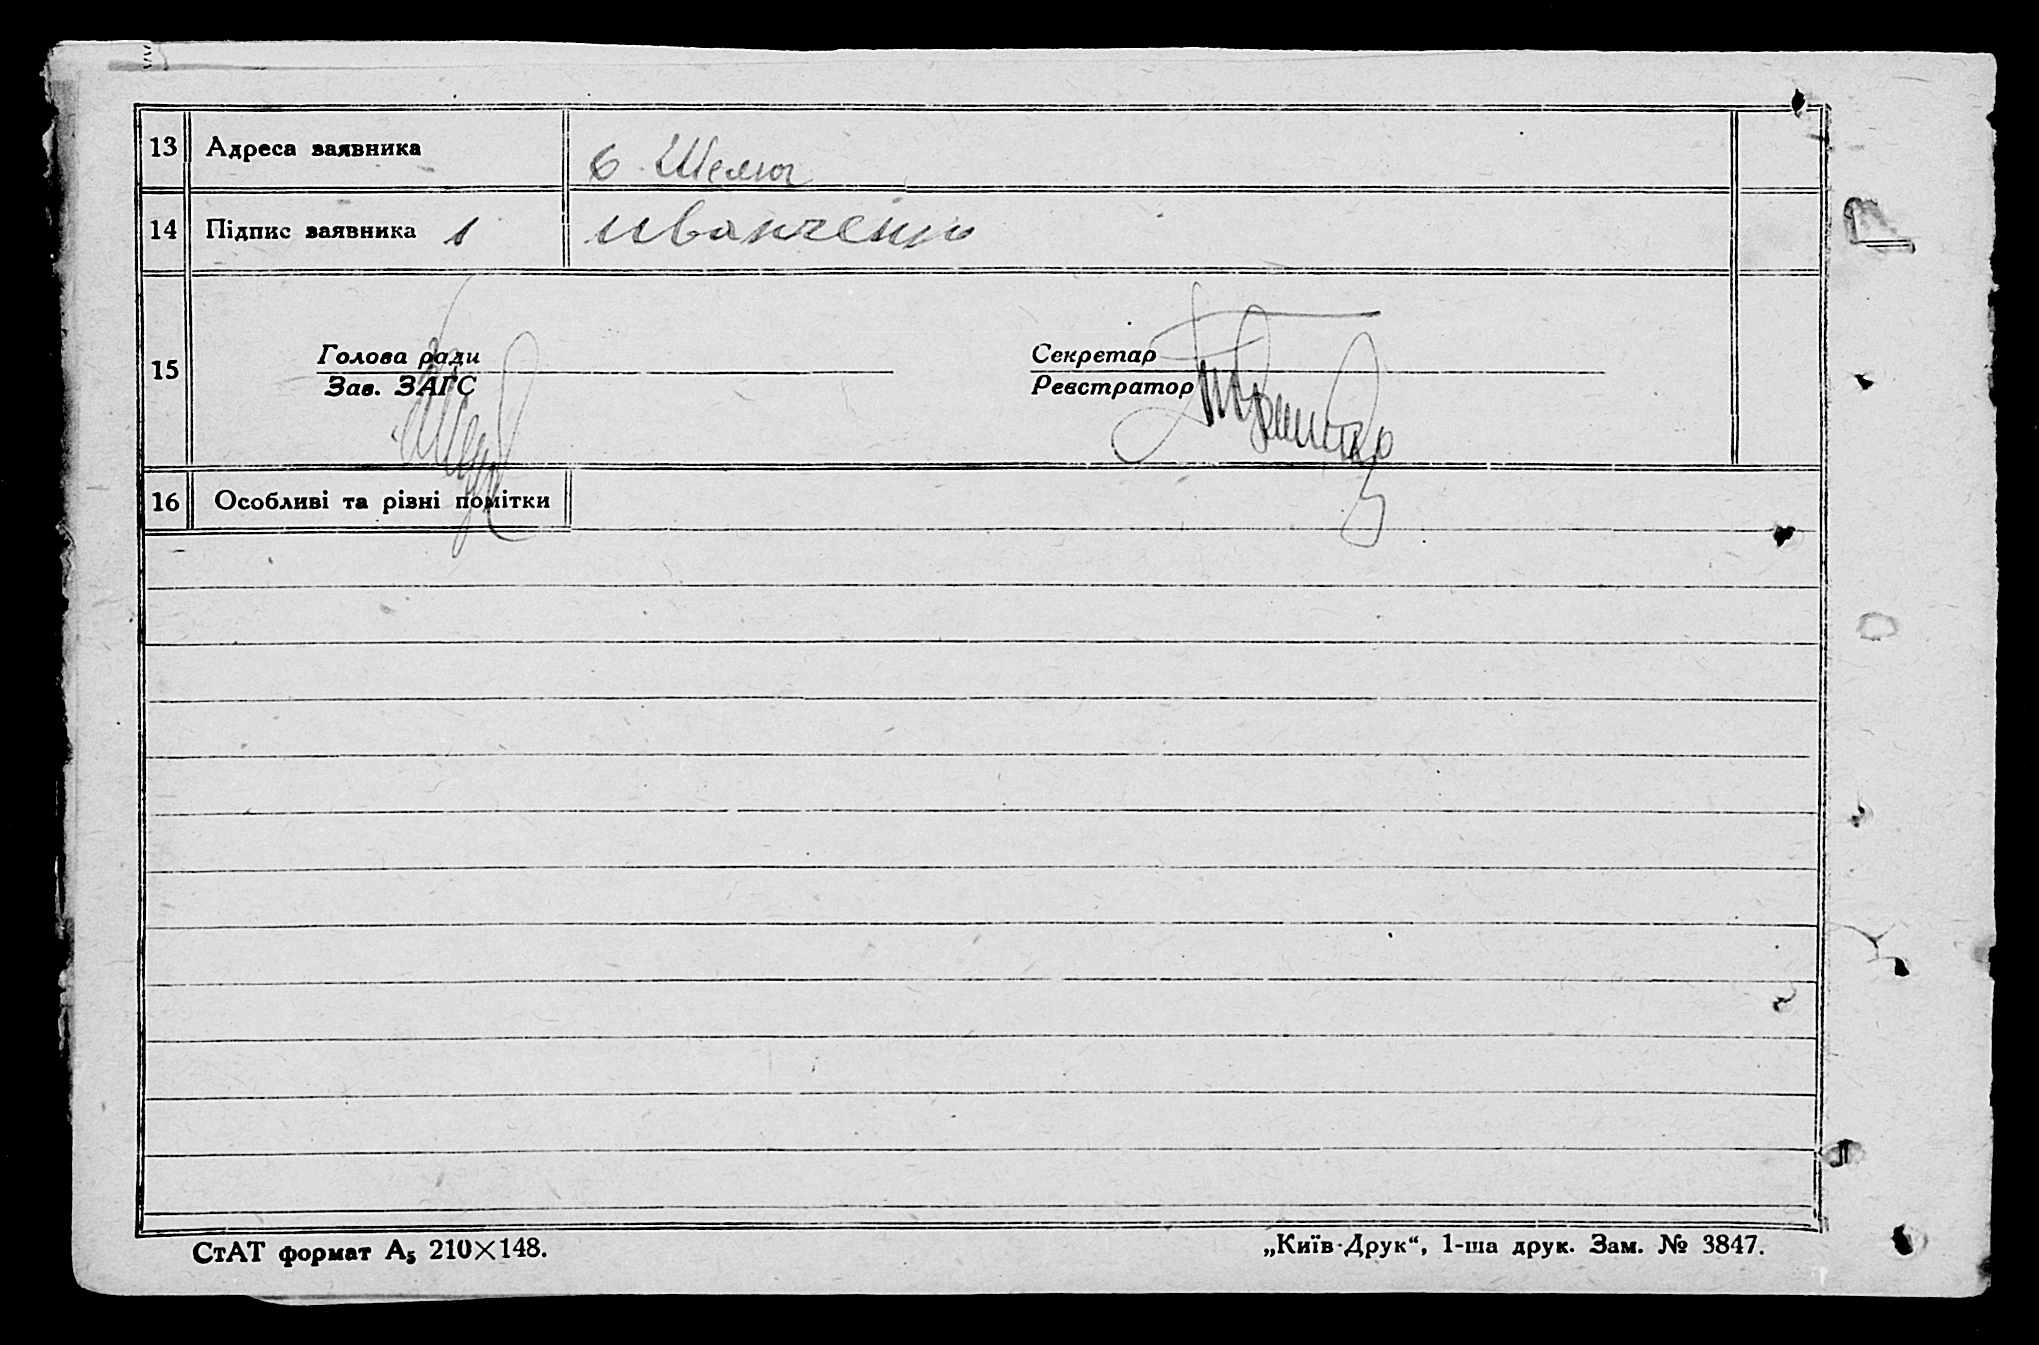 13 Адреса заявника с. Шелюг
14 Підпис заявника Иванченко
15 Голова ради Секретар
Зав. ЗАГС Реєстратор
16 Особливі та різні помітки
СтАТ формат А₅ 210×148. „Київ-Друк“, 1-ша друк. Зам. № 3847.